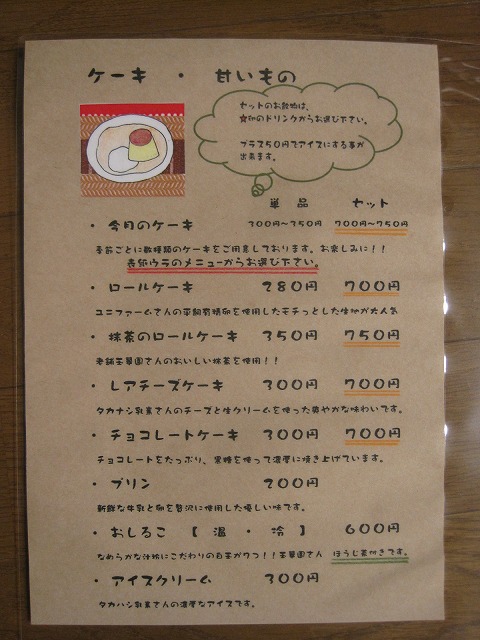 ケーキ ・ 甘いもの
セットのお飲物は、
☆印のドリンクからお選び下さい。
プラス50円でアイスにする事が
出来ます。
単品 セット
・ 今月のケーキ 300円~350円 700円~750円
季節ごとに数種類のケーキをご用意しております。お楽しみに!!
表紙ウラのメニューからお選び下さい。
・ ロールケーキ 280円 700円
ユニファームさんの平飼有精卵を使用したモチっとした生地が大人気
・ 抹茶のロールケーキ 350円 750円
老舗玉華園さんのおいしい抹茶を使用!!
・ レアチーズケーキ 300円 700円
タカナシ乳業さんのチーズと生クリームを使った爽やかな味わいです。
・ チョコレートケーキ 300円 700円
チョコレートをたっぷり、黒糖を使って濃厚に焼き上げています。
・ プリン 200円
新鮮な牛乳と卵を贅沢に使用した優しい味です。
・ おしるこ 【 温 ・ 冷 】 600円
なめらかな汁粉にこだわりの白玉が7つ!!玉華園さん ほうじ茶付きです。
・ アイスクリーム 300円
タカハシ乳業さんの濃厚なアイスです。